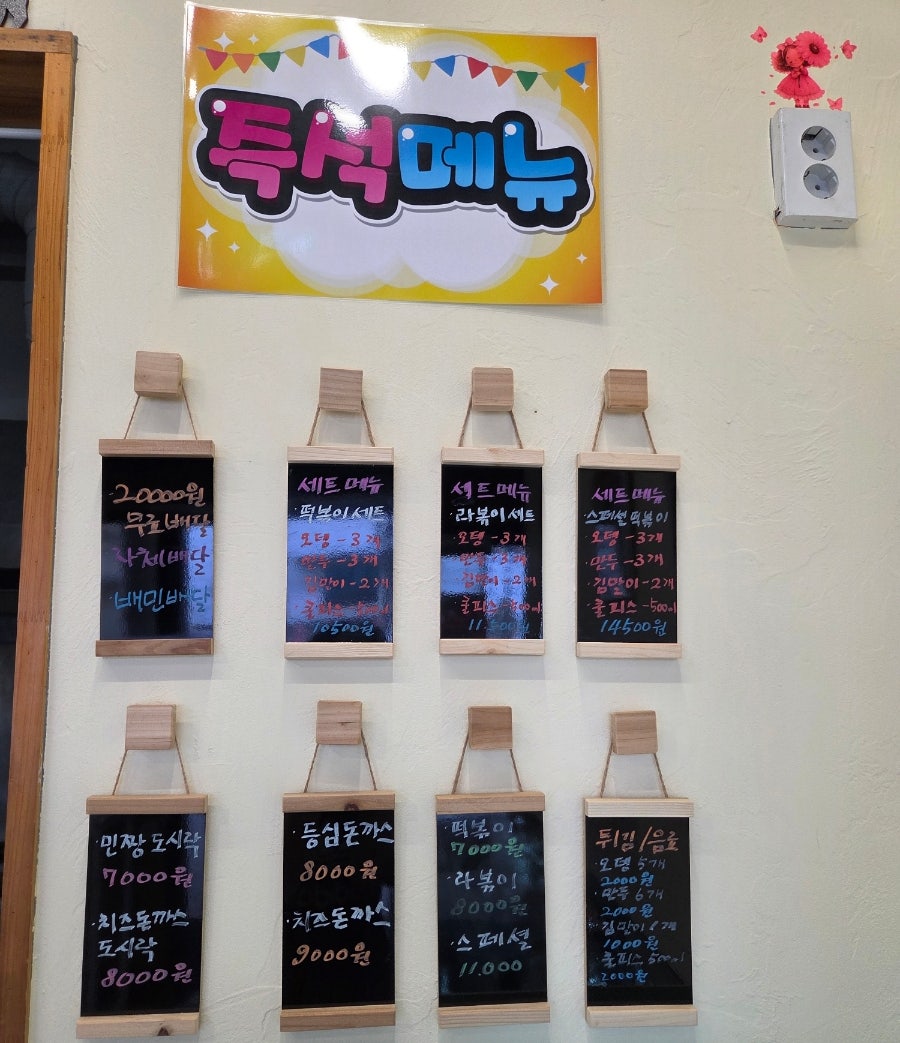 특석메뉴
20000원
무료배달
자체배달
·배민배달
세트메뉴
·떡볶이세트
오뎅-3개
만두-3개
김말이-2개
·쿨피스-500ml
10500원
세트메뉴
·라볶이세트
오뎅-3개
만두-3개
김말이-2개
쿨피스-500ml
11500원
세트메뉴
·스페셜떡볶이
·오뎅-3개
·만두-3개
·김말이-2개
·쿨피스-500ml
14500원
·민짱도시락
7000원
·치즈돈까스
도시락
8000원
·등심돈까스
8000원
·치즈돈까스
9000원
·떡볶이
7000원
·라볶이
8000원
·스페셜
11.000
튀김/음료
·오뎅5개
2000원
·만두6개
2000원
·김말이
1000원
·쿨피스500ml
2000원